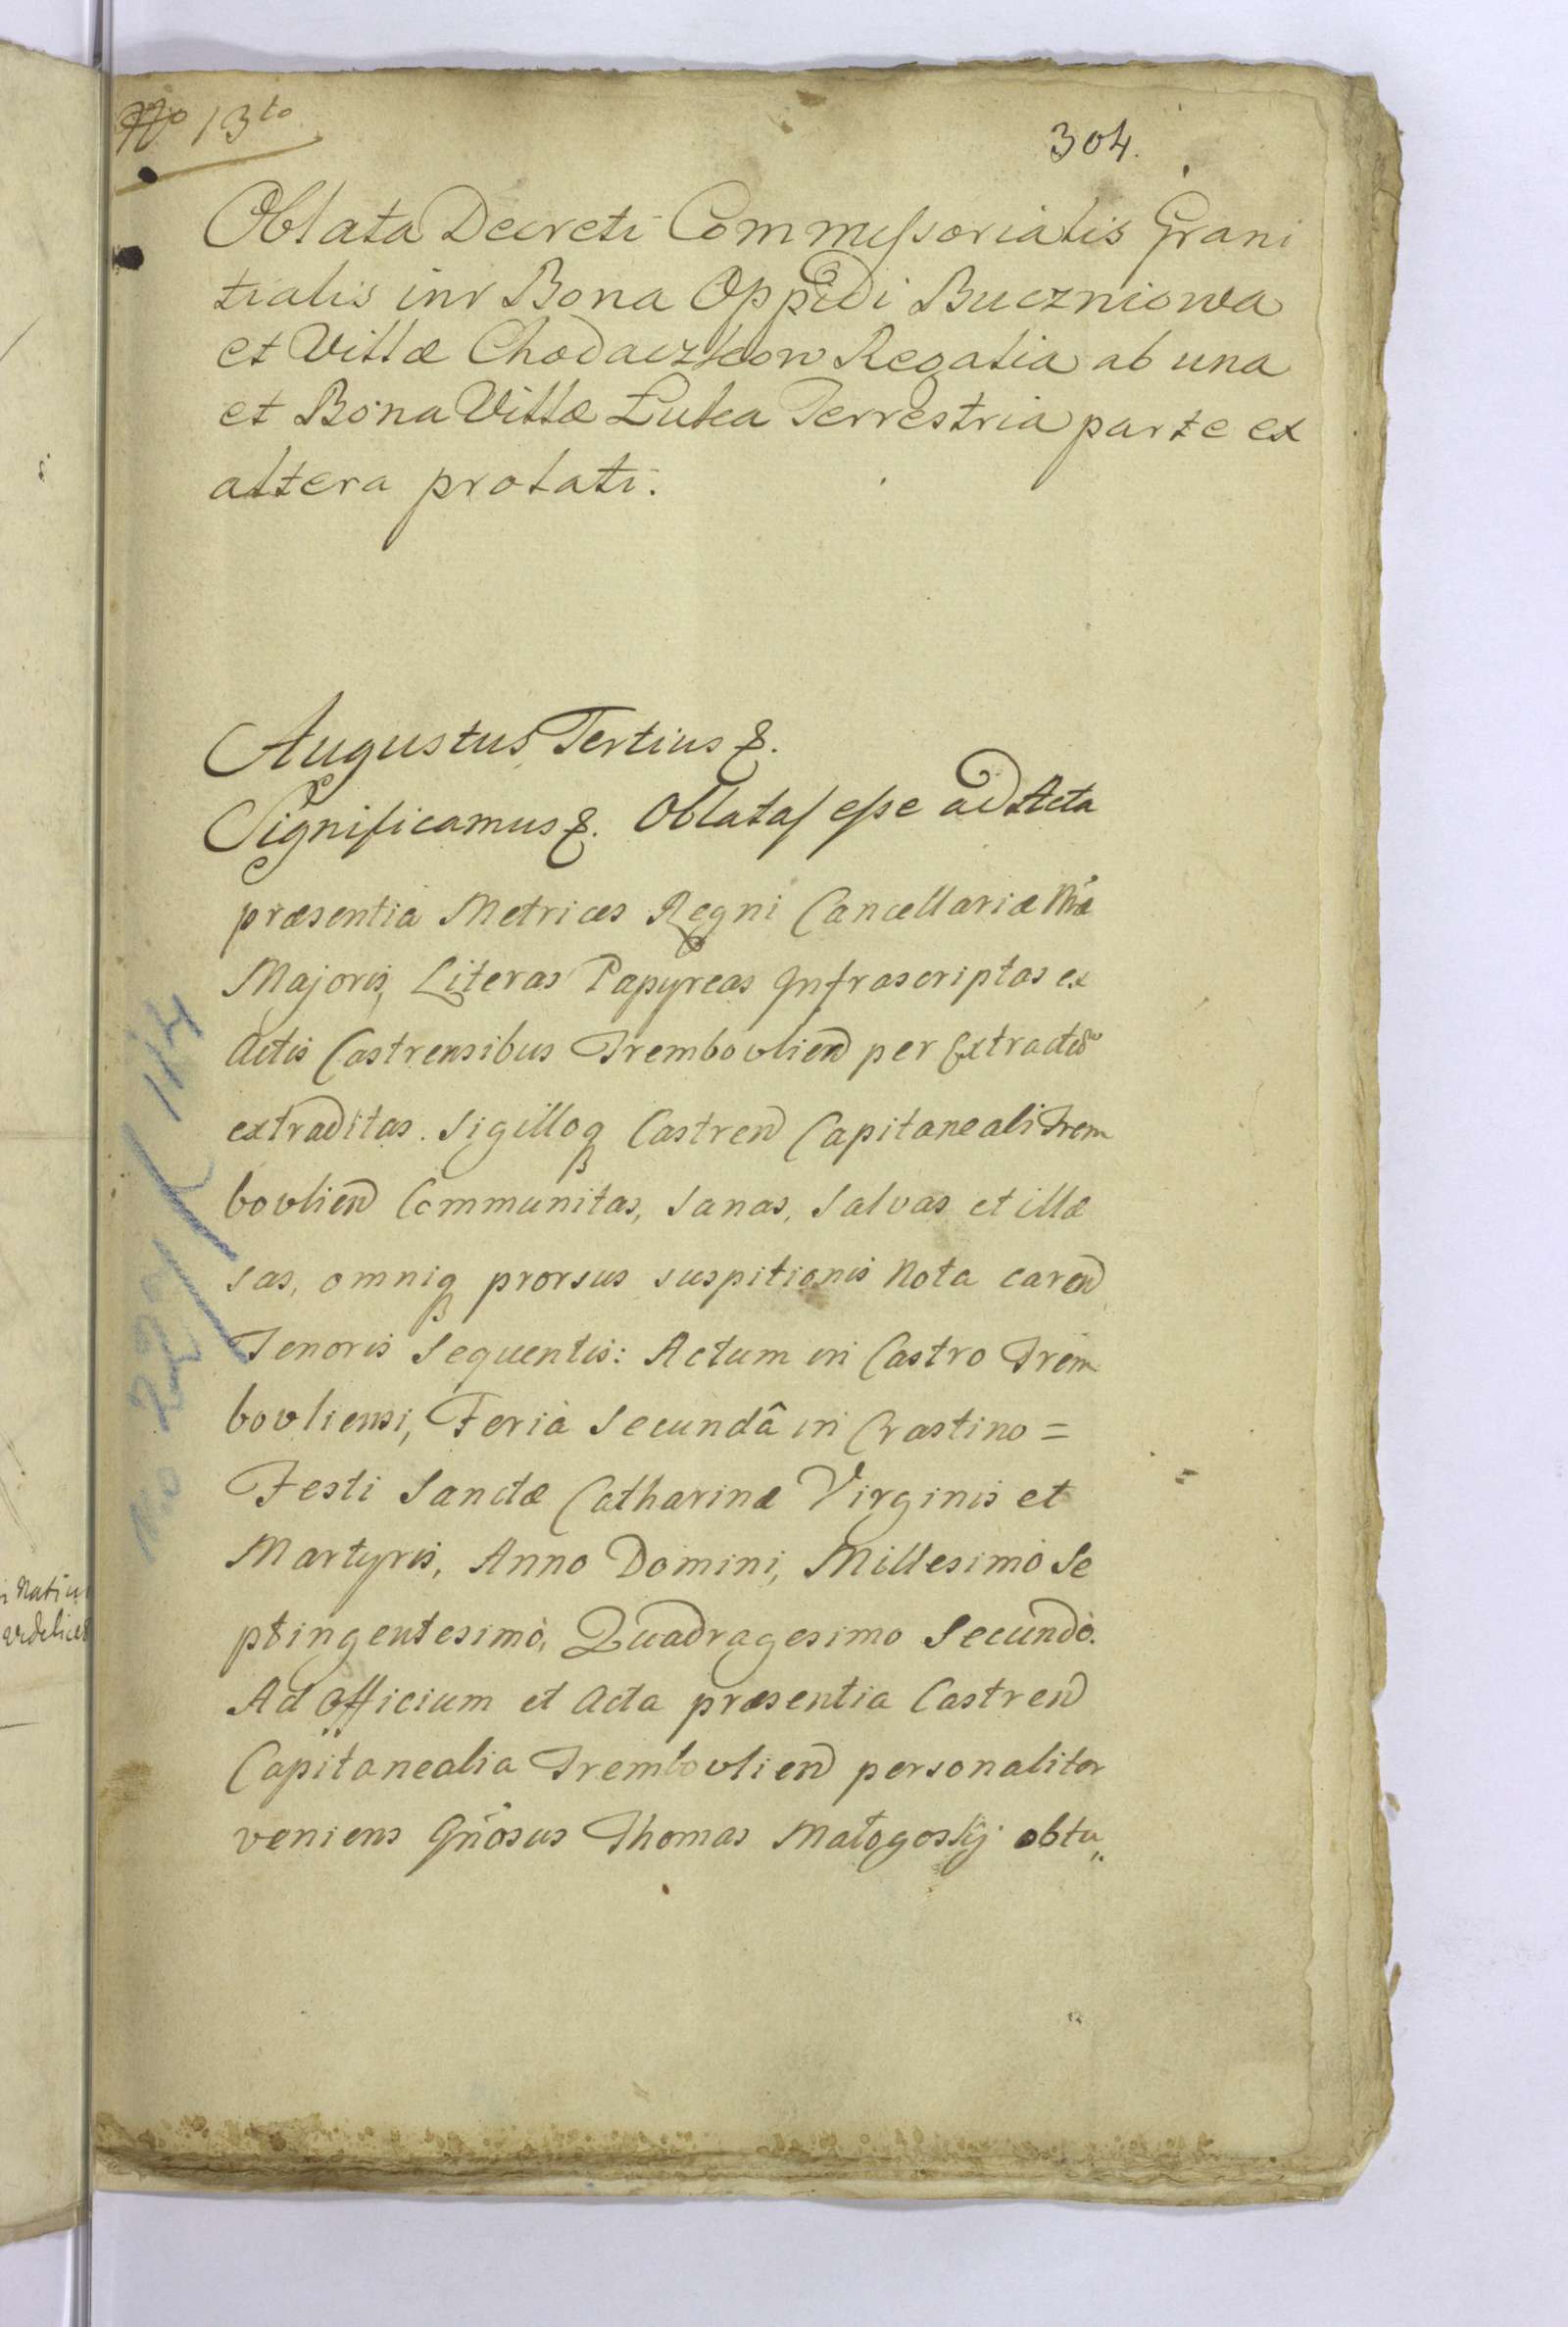 No 13to
304.
Oblata Decreti Commissorialis Grani
tialis inr Bona Oppidi Buczniowa
et Villæ Chodaczkow Regalia ab una
et Bona Villæ Łuka Terrestria parte ex
altera prolati.
Augustus Tertius &.
Significamus &. Oblatas esse ad Acta
præsentia Metrices Regni Cancellariæ Nræ
Majoris, Literas Papyreas Infrascriptas ex
Actis Castrensibus Trembovlien per Extractū
extraditas. Sigilloq Castren Capitaneali Trem
bovlien Communitas, Sanas, Salvas et illæ
sas, omniq prorsus suspitionis Nota caren
Tenoris Sequentis: Actum in Castro Trem
bovliensi, Feriâ Secundâ in Crastino =
Festi Sanctæ Catharinæ Virginis et
Martyris, Anno Domini, Millesimò Se
ptingentesimò, Quadragesimo Secundò.
Ad Officium et Acta præsentia Castren
Capitanealia Trembovlien personaliter
veniens Gnosus Thomas Małogoskÿ obtu„
No 229 / 114
i Natiu
videlicet